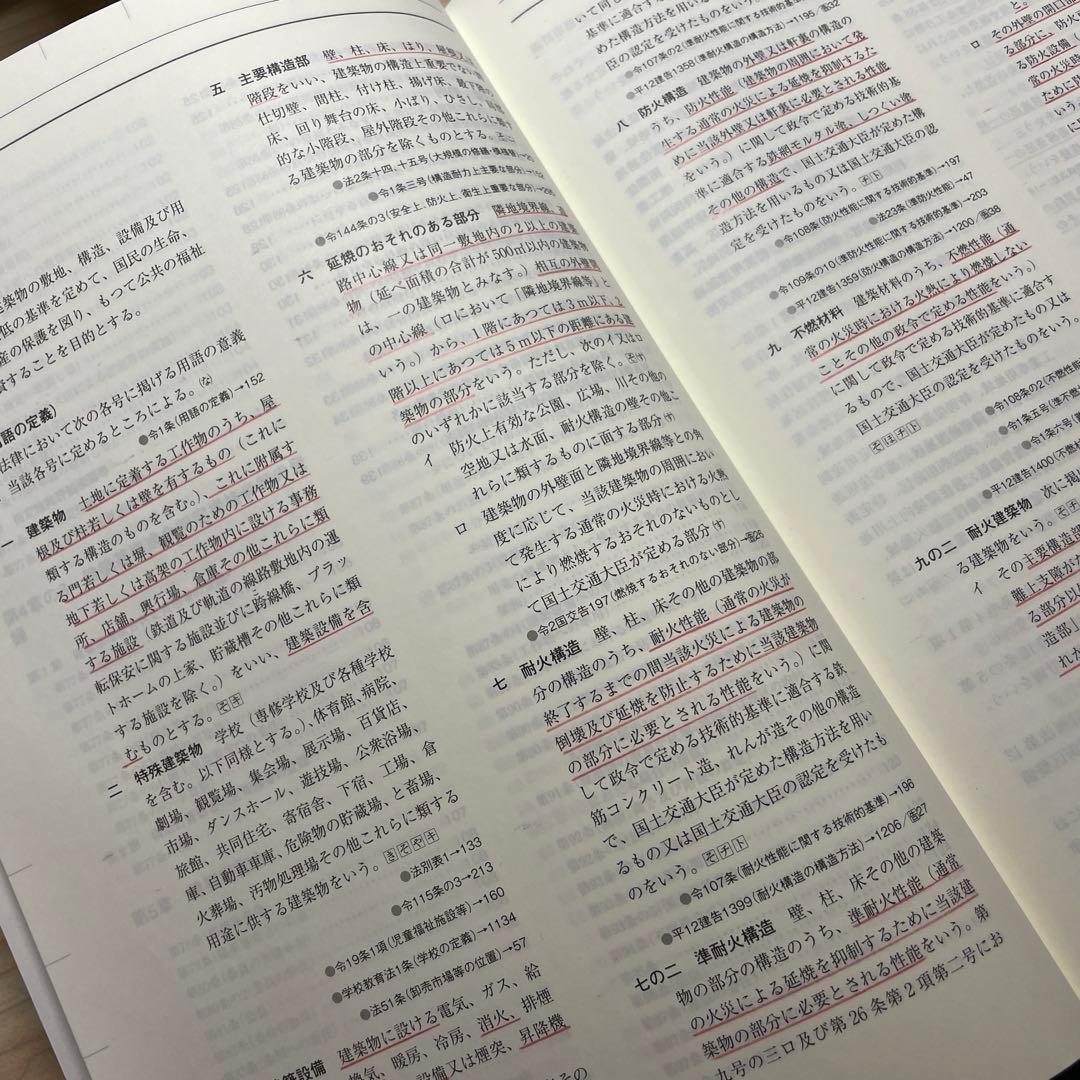 建築物の敷地、構造、設備及び用
低の基準を定めて、国民の生命、
産の保護を図り、もつて公共の福祉
資することを目的とする。
語の定義)
法律において次の各号に掲げる用語の意義
当該各号に定めるところによる。(な)
●令1条(用語の定義)→152
一 建築物 土地に定着する工作物のうち、屋
根及び柱若しくは壁を有するもの(これに
類する構造のものを含む。)、これに附属す
る門若しくは塀、観覧のための工作物又は
地下若しくは高架の工作物内に設ける事務
所、店舗、興行場、倉庫その他これらに類
する施設(鉄道及び軌道の線路敷地内の運
転保安に関する施設並びに跨線橋、プラッ
トホームの上家、貯蔵槽その他これらに類
する施設を除く。)をいい、建築設備を含
むものとする。そキ
二 特殊建築物 学校(専修学校及び各種学校
を含む。以下同様とする。)、体育館、病院、
劇場、観覧場、集会場、展示場、百貨店、
市場、ダンスホール、遊技場、公衆浴場、
旅館、共同住宅、寄宿舎、下宿、工場、倉
庫、自動車車庫、危険物の貯蔵場、と畜場、
火葬場、汚物処理場その他これらに類する
用途に供する建築物をいう。きそやキ
●法別表1→133
●令115条の3→213
●令19条1項(児童福祉施設等)→160
●学校教育法1条(学校の定義)→1134
●法51条(卸売市場等の位置)→57
築設備 建築物に設ける電気、ガス、給
換気、暖房、冷房、消火、排煙
設備又は煙突、昇降機
五 主要構造部 壁、柱、床、はり、屋根
階段をいい、建築物の構造上重要でない
仕切壁、間柱、付け柱、揚げ床、最下階の
床、回り舞台の床、小ばり、ひさし、局
的な小階段、屋外階段その他これらに類
る建築物の部分を除くものとする。
●法2条十四、十五号(大規模の修繕・模様替)
●令1条三号(構造耐力上主要な部分)→152
●令144条の3(安全上、防火上、衛生上重要な部分)
六 延焼のおそれのある部分 隣地境界線、
路中心線又は同一敷地内の2以上の建築
物(延べ面積の合計が500㎡以内の建築物
は、一の建築物とみなす。)相互の外壁間
の中心線(ロにおいて「隣地境界線等」と
いう。)から、1階にあつては3m以下、2
階以上にあつては5m以下の距離にある建
築物の部分をいう。ただし、次のイ又はロ
のいずれかに該当する部分を除く。
イ 防火上有効な公園、広場、川その他の
空地又は水面、耐火構造の壁その他こ
れらに類するものに面する部分
ロ 建築物の外壁面と隣地境界線等との角
度に応じて、当該建築物の周囲におい
て発生する通常の火災時における火熱
により燃焼するおそれのないものとし
て国土交通大臣が定める部分
●令2国交告197(燃焼するおそれのない部分)→画26
七 耐火構造 壁、柱、床その他の建築物の部
分の構造のうち、耐火性能(通常の火災が
終了するまでの間当該火災による建築物の
倒壊及び延焼を防止するために当該建築物
の部分に必要とされる性能をいう。)に関
して政令で定める技術的基準に適合する鉄
筋コンクリート造、れんが造その他の構造
で、国土交通大臣が定めた構造方法を用い
るもの又は国土交通大臣の認定を受けたも
のをいう。そチト
●令107条(耐火性能に関する技術的基準)→196
●平12建告1399(耐火構造の構造方法)→1206/画27
七の二 準耐火構造 壁、柱、床その他の建築
物の部分の構造のうち、準耐火性能(通常
の火災による延焼を抑制するために当該建
築物の部分に必要とされる性能をいう。第
九号の三ロ及び第26条第2項第二号にお
いて同じ
基準に適合する
めた構造方法を用いる
臣の認定を受けたものをいう
●令107条の2(準耐火性能に関する技術的基準)→195
●平12建告1358(準耐火構造の構造方法)→1195/画32
八 防火構造 建築物の外壁又は軒裏の構造の
うち、防火性能(建築物の周囲において発
生する通常の火災による延焼を抑制するた
めに当該外壁又は軒裏に必要とされる性能
をいう。)に関して政令で定める技術的基
準に適合する鉄網モルタル塗、しつくい塗
その他の構造で、国土交通大臣が定めた構
造方法を用いるもの又は国土交通大臣の認
定を受けたものをいう。チト
●令108条(防火性能に関する技術的基準)→197
●法23条(準防火性能)→47
●令109条の10(準防火性能に関する技術的基準)→203
●平12建告1359(防火構造の構造方法)→1200/画38
九 不燃材料 建築材料のうち、不燃性能(通
常の火災時における火熱により燃焼しない
ことその他の政令で定める性能をいう。)
に関して政令で定める技術的基準に適合す
るもので、国土交通大臣が定めたもの又は
国土交通大臣の認定を受けたものをいう。
そほチト
●令108条の2(不燃性能
●令1条五号(準不燃
●令1条六号(
●平12建告1400(不燃材
九の二 耐火建築物 次に掲げ
る建築物をいう。そチ
イ その主要構造部
離上支障がな
る部分以
造部」
れか
と。
ロ その外壁の開口部
る部分に、防火
防火設備(
常の火災時
ために防